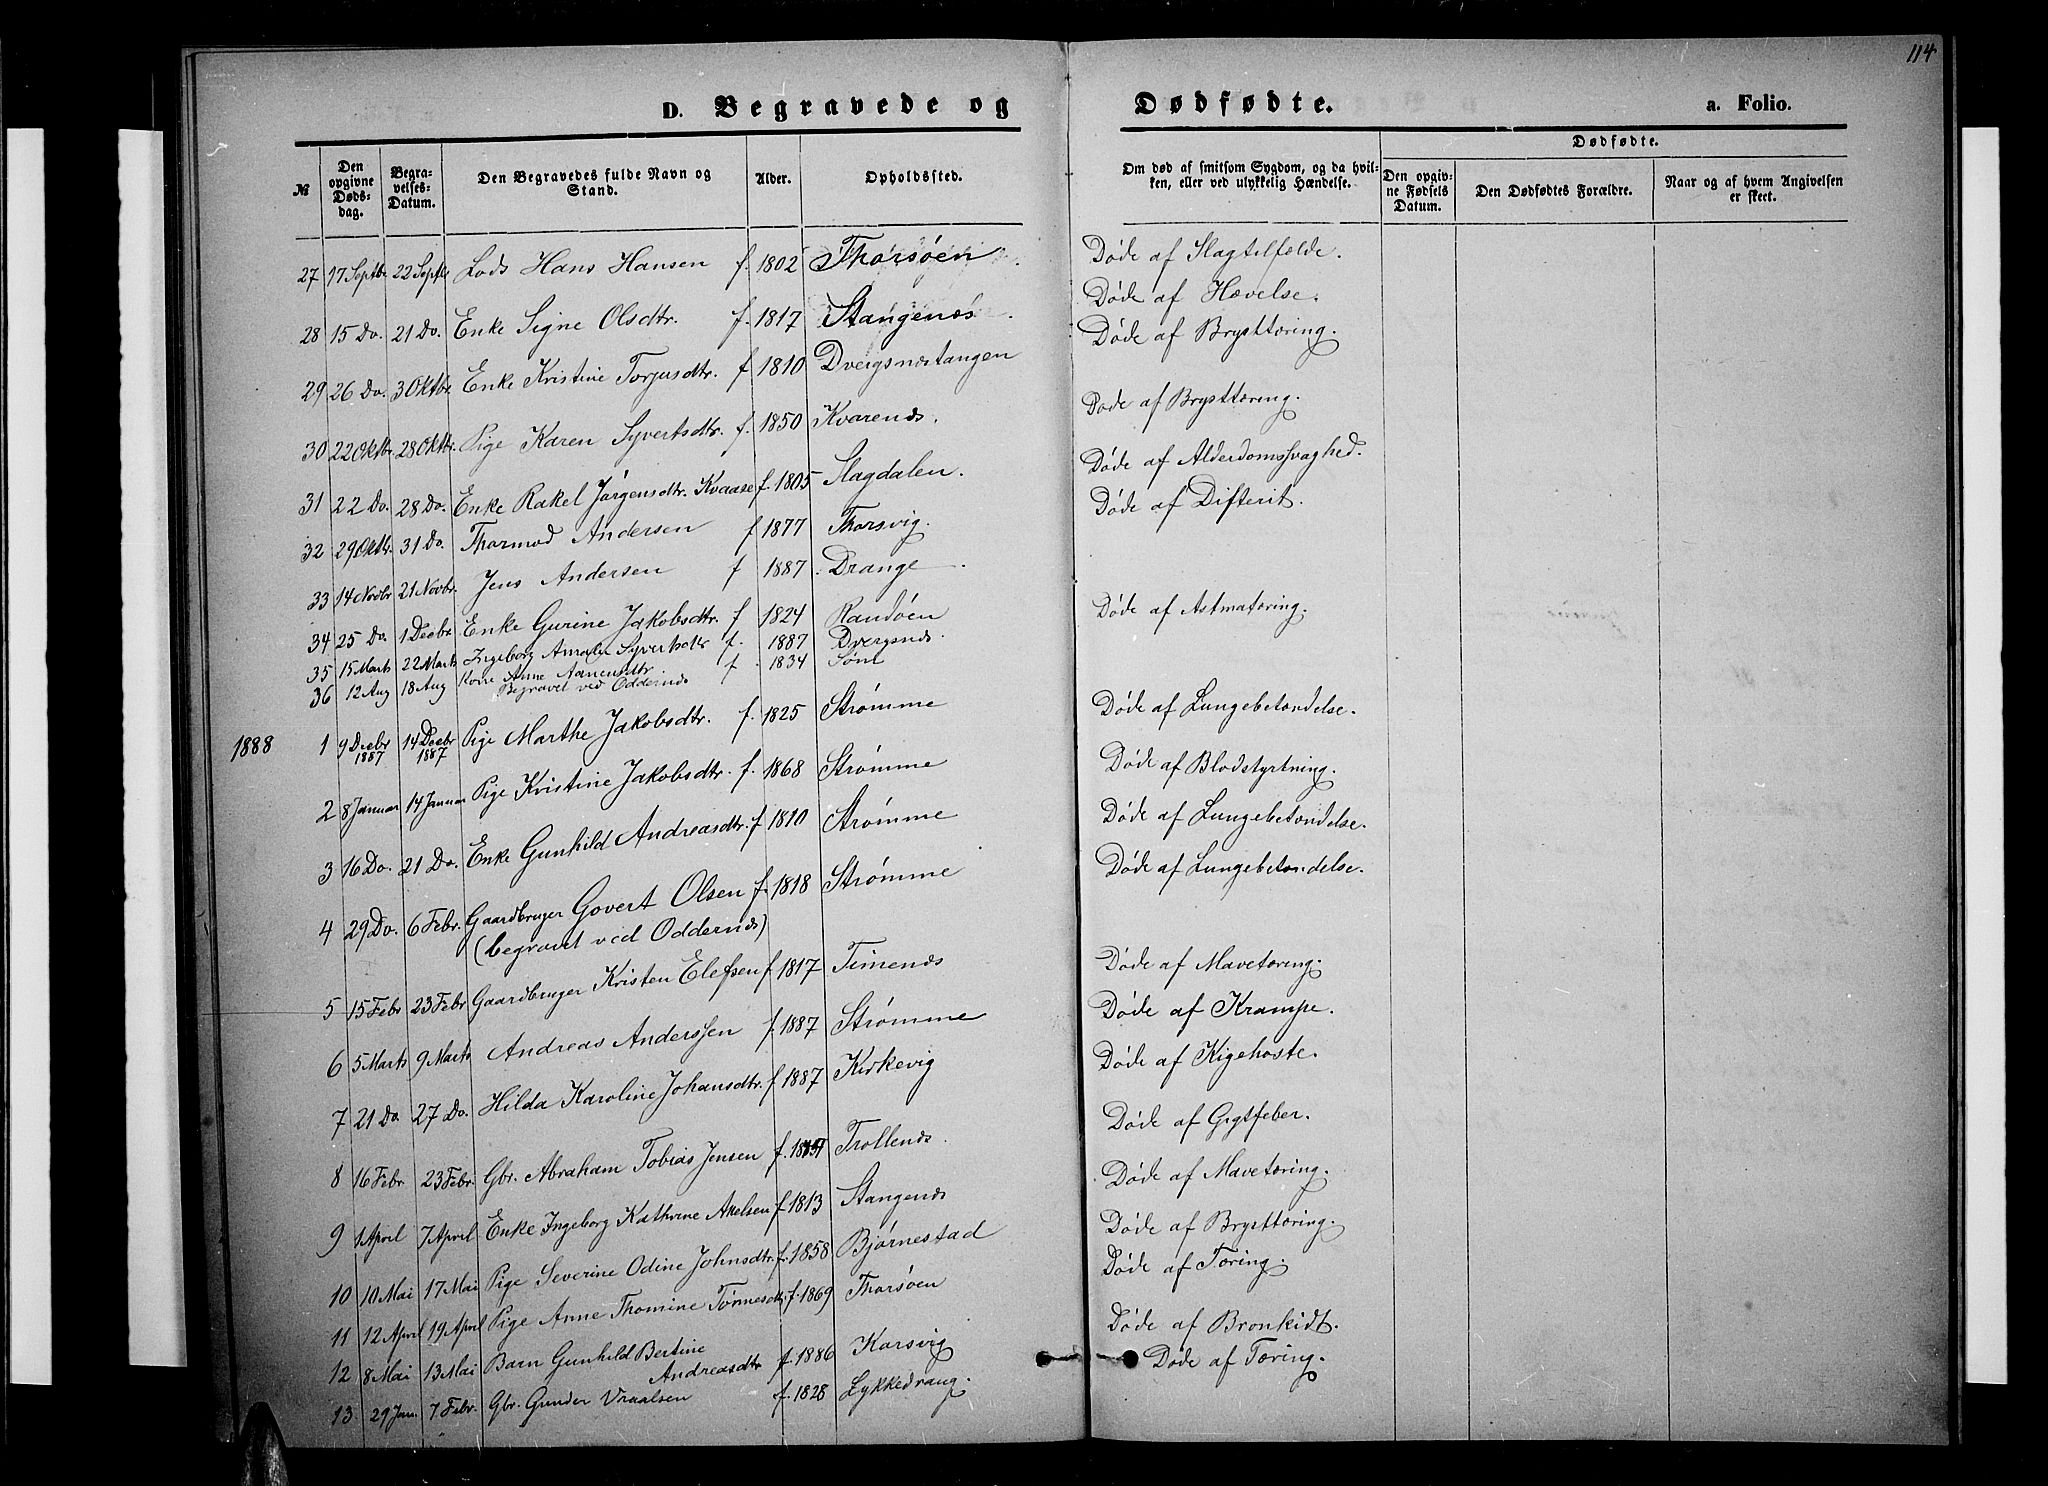 114
D. Begravede og Dødfødte. a. Folio.
№ Den opgivne Dødsdag. Begravelses-Datum. Den Begravedes fulde Navn og Stand. Alder. Opholdssted. Om død af smitsom Sygdom, og da hvilken, eller ved ulykkelig Hændelse. Dødfødte. Den opgivne Fødsels Datum. Den Dødfødtes Forældre. Naar og af hvem Angivelsen er skeet.
27 17 Septbr. 22 Septbr. Lods Hans Hansen f. 1802 Thorsøen Døde af Slagtilfælde.
28 15 Do. 21 Do. Enke Signe Olsdtr. f. 1817 Stangenæs. Døde af Hævelse.
29 26 Do. 3 Oktbr. Enke Kristine Torjusdtr. f 1810 Dvergsnæstangen Døde af Brysttæring.
30 22 Oktbr. 28 Oktbr. Pige Karen Syvertsdtr. f. 1850 Kvarenæs. Døde af Brysttæring.
31 22 Do. 28 Do. Enke Rakel Jørgensdtr. Kvaase f. 1805 Slagdalen. Døde af Alderdomssvaghed.
32 29 Oktbr. 31 Do. Thormod Andersen f 1877 Thorsvig. Døde af Difterit.
33 14 Novbr 21 Novbr. Jens Andersen f 1887. Drange.
34 25 Do. 1 Decbr. Enke Gurine Jakobsdtr. f 1824 Randøen Døde af Astmatæring.
35 15 Marts 22 Marts Ingeborg Amalie Syvertsdtr f. 1887 Dvergsnæs.
36 12 Aug 18 Aug Kone Anne Aanensdtr. f. 1834 Søm
Begravet ved Oddernæs
1888 1 9 Decbr 1887 14 Decbr 1887 Pige Marthe Jakobsdtr. f. 1825 Strømme Døde af Lungebetændelse.
2 8 Januar 14 Januar Pige Kristine Jakobsdtr. f. 1868 Strømme Døde af Blodstyrtning.
3 16 Do. 21 Do. Enke Gunhild Andreasdtr. f 1810 Strømme Døde af Lungebetændelse.
4 29 Do. 6 Febr. Gaardbruger Govert Olsen f. 1818 Strømme Døde af Lungebetændelse.
(begravet ved Oddernæs)
5 15 Febr 23 Febr Gaardbruger Kristen Elefsen f 1817 Timenæs Døde af Mavetæring.
6 5 Marts 9 Marts Andreas Anderssen f. 1887 Strømme Døde af Krampe.
7 21 Do. 27 Do. Hilda Karoline Johansdtr. f 1887 Kirkevig Døde af Kigehoste.
8 16 Febr 23 Febr. Gbr. Abraham Tobias Jensen f. Trollenæs. Døde af Gigtfeber.
9 1 April 7 April Enke Ingeborg Kathrine Akelsen f 1813 Stangenæs Døde af Mavetæring.
10 10 Mai 17 Mai Pige Severine Odine Johnsdtr. f. 1858 Bjørnestad Døde af Brysttæring.
11 12 April 19 April Pige Anne Thomine Tønnesdtr f. 1869 Thorsøen Døde af Tæring.
12 8 Mai 13 Mai Barn Gunhild Bertine Andreasdtr f. 1886 Korsvig Døde af Bronkidt.
13 29 Jan. 7 Febr. Gbr. Gunder Vraalsen f. 1828 Lykkedrang. Døde af Tæring.